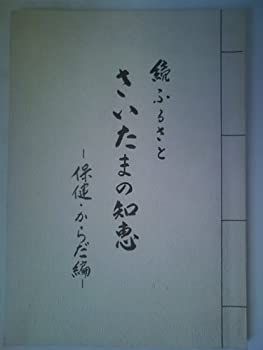 続ふるさと
さいたまの知恵
-保健・からだ編-